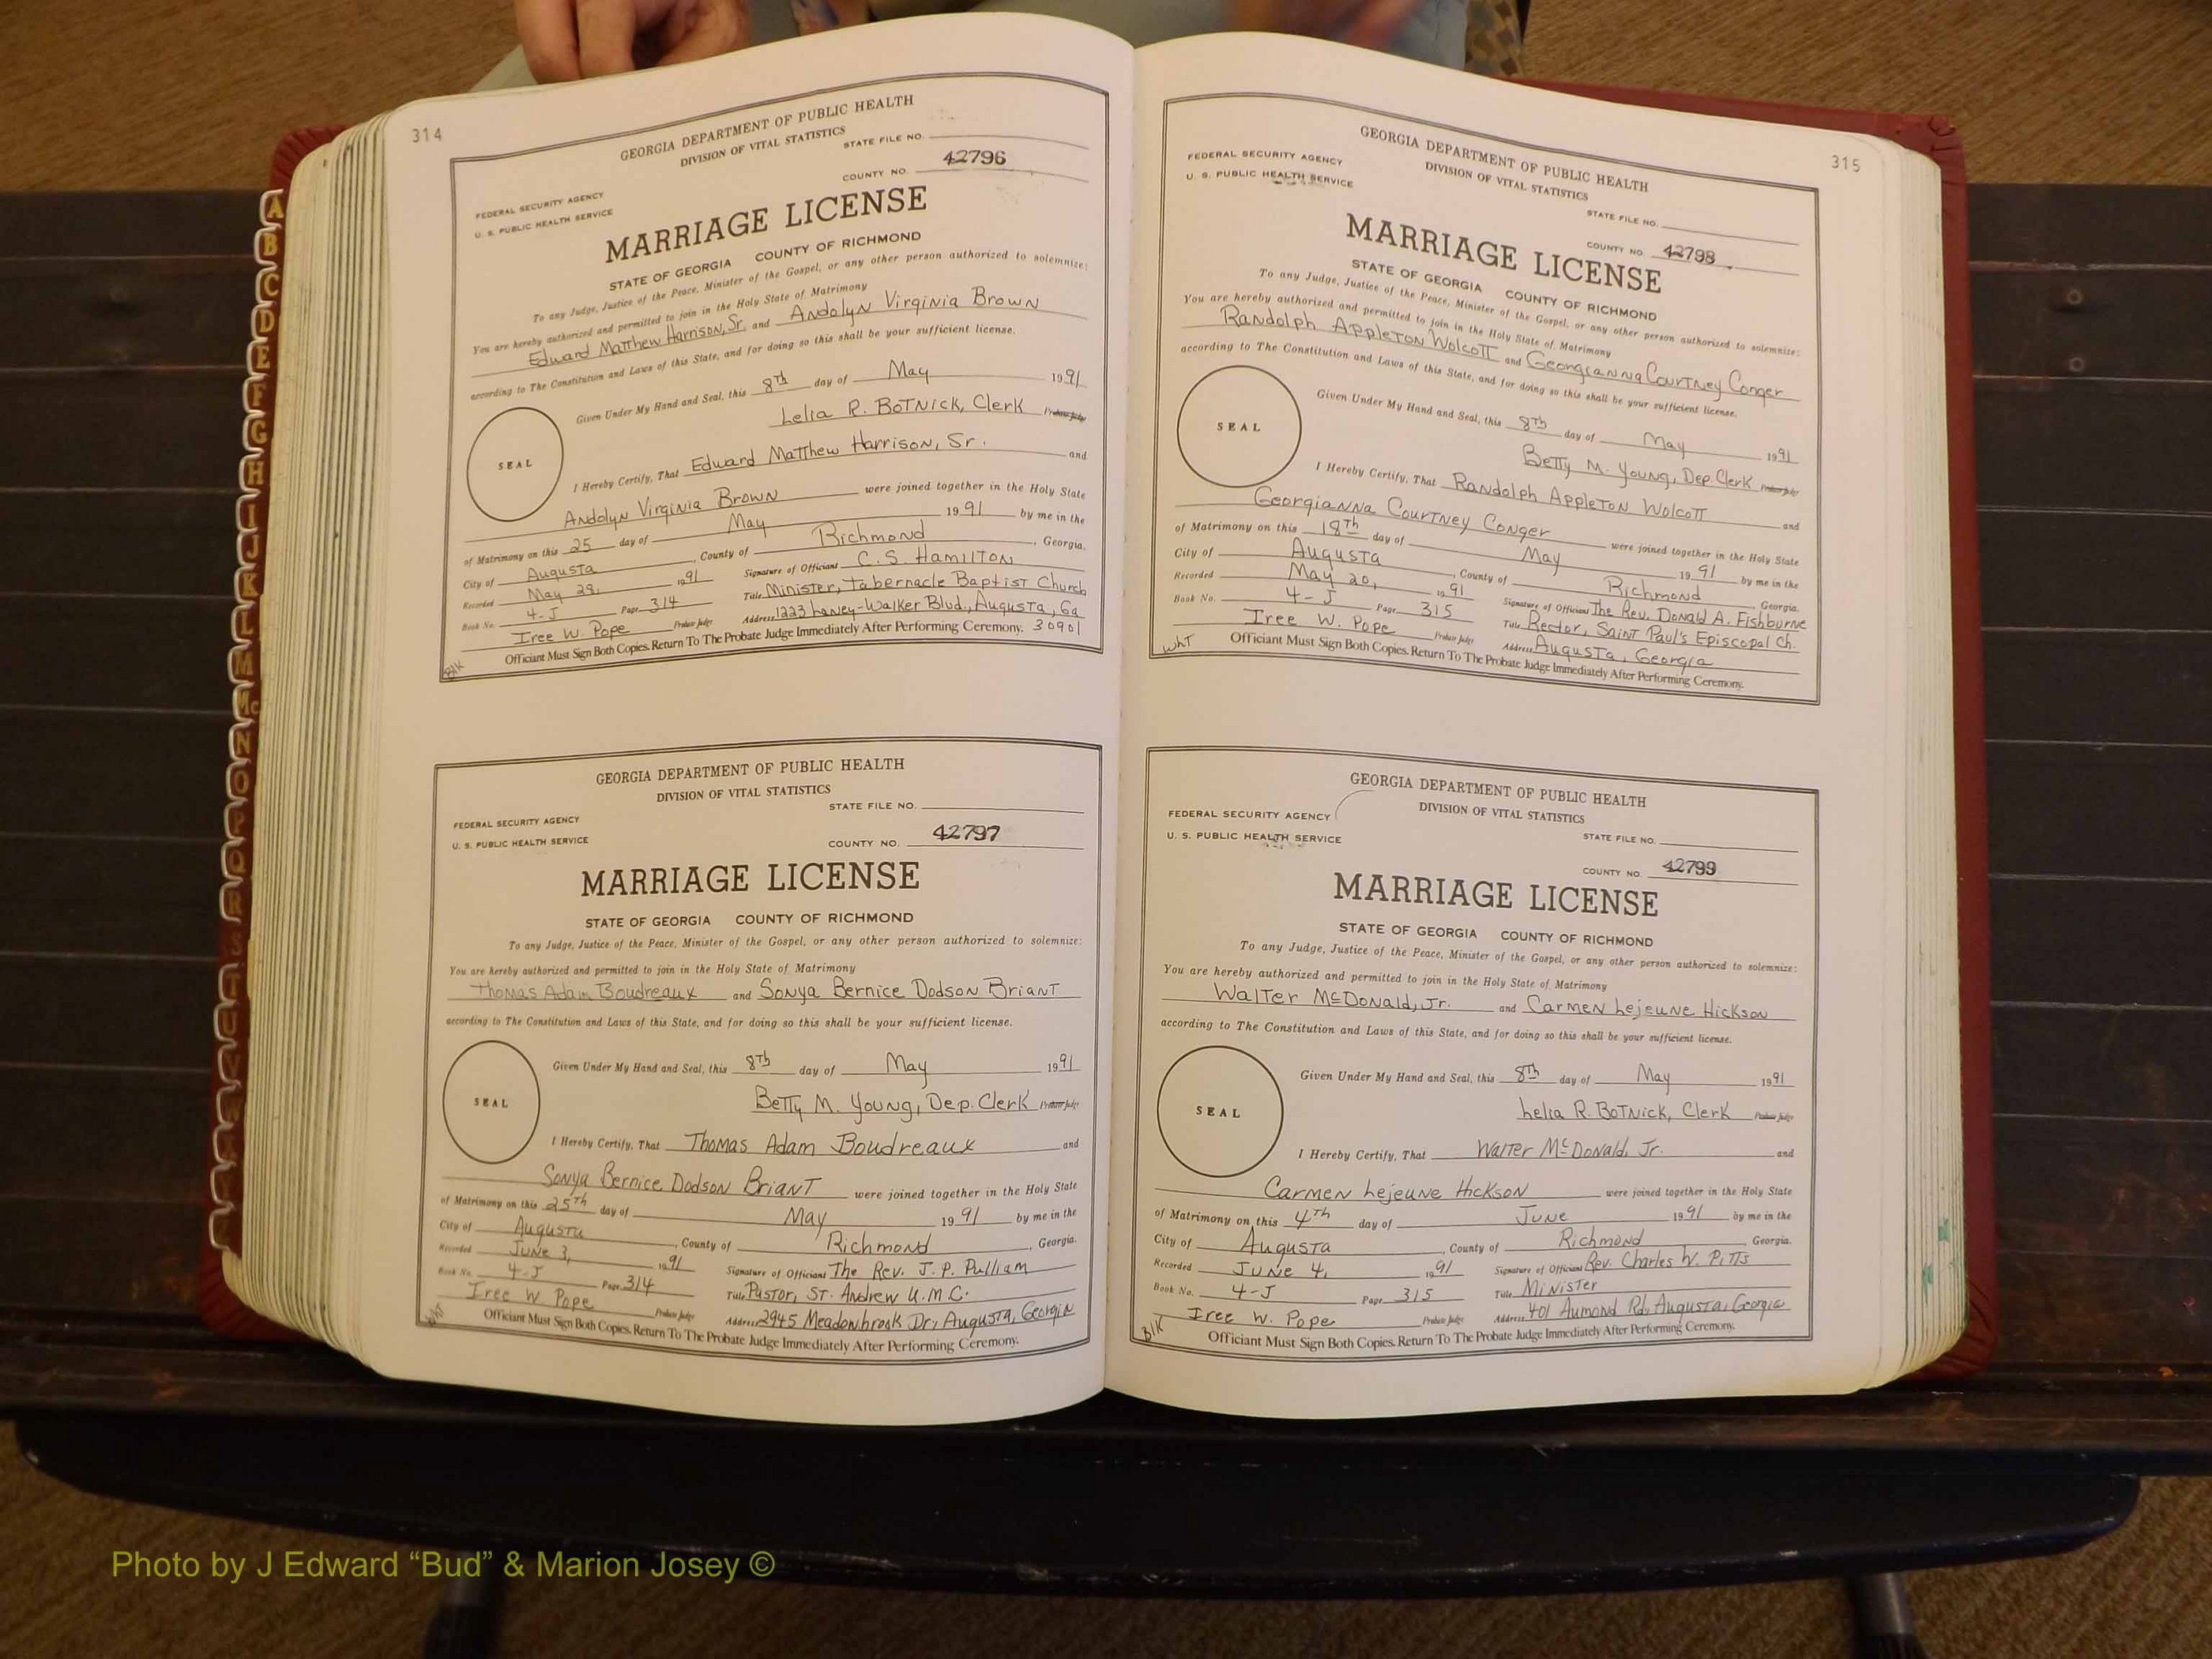 314
GEORGIA DEPARTMENT OF PUBLIC HEALTH
DIVISION OF VITAL STATISTICS
STATE FILE NO.
COUNTY NO. 42796
FEDERAL SECURITY AGENCY
U. S. PUBLIC HEALTH SERVICE
MARRIAGE LICENSE
STATE OF GEORGIA COUNTY OF RICHMOND
To any Judge, Justice of the Peace, Minister of the Gospel, or any other person authorized to solemnize:
You are hereby authorized and permitted to join in the Holy State of Matrimony
Edward Matthew Harrison, Sr. and Andolyn Virginia Brown
according to The Constitution and Laws of this State, and for doing so this shall be your sufficient license.
Given Under My Hand and Seal, this 8th day of May 1991
Lelia R. Botnick, Clerk Probate Judge
SEAL
I Hereby Certify, That Edward Matthew Harrison, Sr. and
Andolyn Virginia Brown were joined together in the Holy State
of Matrimony on this 25 day of May 1991 by me in the
City of Augusta, County of Richmond, Georgia.
Recorded May 29, 1991 Signature of Officiant C. S. Hamilton
Book No. 4-J Page 314 Title Minister, Tabernacle Baptist Church
Iree W. Pope Probate Judge Address 1223 Laney-Walker Blvd., Augusta, Ga 30901
Officiant Must Sign Both Copies. Return To The Probate Judge Immediately After Performing Ceremony.
Blk
GEORGIA DEPARTMENT OF PUBLIC HEALTH
DIVISION OF VITAL STATISTICS
STATE FILE NO.
FEDERAL SECURITY AGENCY
U. S. PUBLIC HEALTH SERVICE
COUNTY NO. 42797
MARRIAGE LICENSE
STATE OF GEORGIA COUNTY OF RICHMOND
To any Judge, Justice of the Peace, Minister of the Gospel, or any other person authorized to solemnize:
You are hereby authorized and permitted to join in the Holy State of Matrimony
Thomas Adam Boudreaux and Sonya Bernice Dodson Briant
according to The Constitution and Laws of this State, and for doing so this shall be your sufficient license.
Given Under My Hand and Seal, this 8th day of May 1991
Betty M. Young, Dep. Clerk Probate Judge
SEAL
I Hereby Certify, That Thomas Adam Boudreaux and
Sonya Bernice Dodson Briant were joined together in the Holy State
of Matrimony on this 25th day of May 1991 by me in the
City of Augusta, County of Richmond, Georgia.
Recorded June 3, 1991 Signature of Officiant The Rev. J. P. Pulliam
Book No. 4-J Page 314 Title Pastor, St. Andrew U.M.C.
Iree W. Pope Probate Judge Address 2945 Meadowbrook Dr., Augusta, Georgia
Officiant Must Sign Both Copies. Return To The Probate Judge Immediately After Performing Ceremony.
Wht
315
GEORGIA DEPARTMENT OF PUBLIC HEALTH
DIVISION OF VITAL STATISTICS
FEDERAL SECURITY AGENCY
U. S. PUBLIC HEALTH SERVICE
STATE FILE NO.
COUNTY NO. 42798
MARRIAGE LICENSE
STATE OF GEORGIA COUNTY OF RICHMOND
To any Judge, Justice of the Peace, Minister of the Gospel, or any other person authorized to solemnize:
You are hereby authorized and permitted to join in the Holy State of Matrimony
Randolph Appleton Wolcott and Georgianna Courtney Conger
according to The Constitution and Laws of this State, and for doing so this shall be your sufficient license.
Given Under My Hand and Seal, this 8th day of May 1991
Betty M. Young, Dep. Clerk Probate Judge
SEAL
I Hereby Certify, That Randolph Appleton Wolcott and
Georgianna Courtney Conger were joined together in the Holy State
of Matrimony on this 18th day of May 1991 by me in the
City of Augusta, County of Richmond Georgia.
Recorded May 20, 1991 Signature of Officiant The Rev. Donald A. Fishburne
Book No. 4-J Page 315 Title Rector, Saint Paul's Episcopal Ch.
Iree W. Pope Probate Judge Address Augusta, Georgia
Officiant Must Sign Both Copies. Return To The Probate Judge Immediately After Performing Ceremony.
Wht
GEORGIA DEPARTMENT OF PUBLIC HEALTH
DIVISION OF VITAL STATISTICS
FEDERAL SECURITY AGENCY
U. S. PUBLIC HEALTH SERVICE
STATE FILE NO.
COUNTY NO. 42799
MARRIAGE LICENSE
STATE OF GEORGIA COUNTY OF RICHMOND
To any Judge, Justice of the Peace, Minister of the Gospel, or any other person authorized to solemnize:
You are hereby authorized and permitted to join in the Holy State of Matrimony
Walter McDonald, Jr. and Carmen Lejeune Hickson
according to The Constitution and Laws of this State, and for doing so this shall be your sufficient license.
Given Under My Hand and Seal, this 8th day of May 1991
Lelia R. Botnick, Clerk Probate Judge
SEAL
I Hereby Certify, That Walter McDonald, Jr. and
Carmen Lejeune Hickson were joined together in the Holy State
of Matrimony on this 4th day of June 1991 by me in the
City of Augusta, County of Richmond Georgia.
Recorded June 4, 1991 Signature of Officiant Rev. Charles W. Pitts
Book No. 4-J Page 315 Title Minister
Iree W. Pope Probate Judge Address 401 Aumond Rd, Augusta, Georgia
Officiant Must Sign Both Copies. Return To The Probate Judge Immediately After Performing Ceremony.
Blk
A
B
C
D
E
F
G
H
I
J
K
L
M
Mc
N
O
P
Q
R
S
T
U
V
W
Photo by J Edward “Bud” & Marion Josey ©